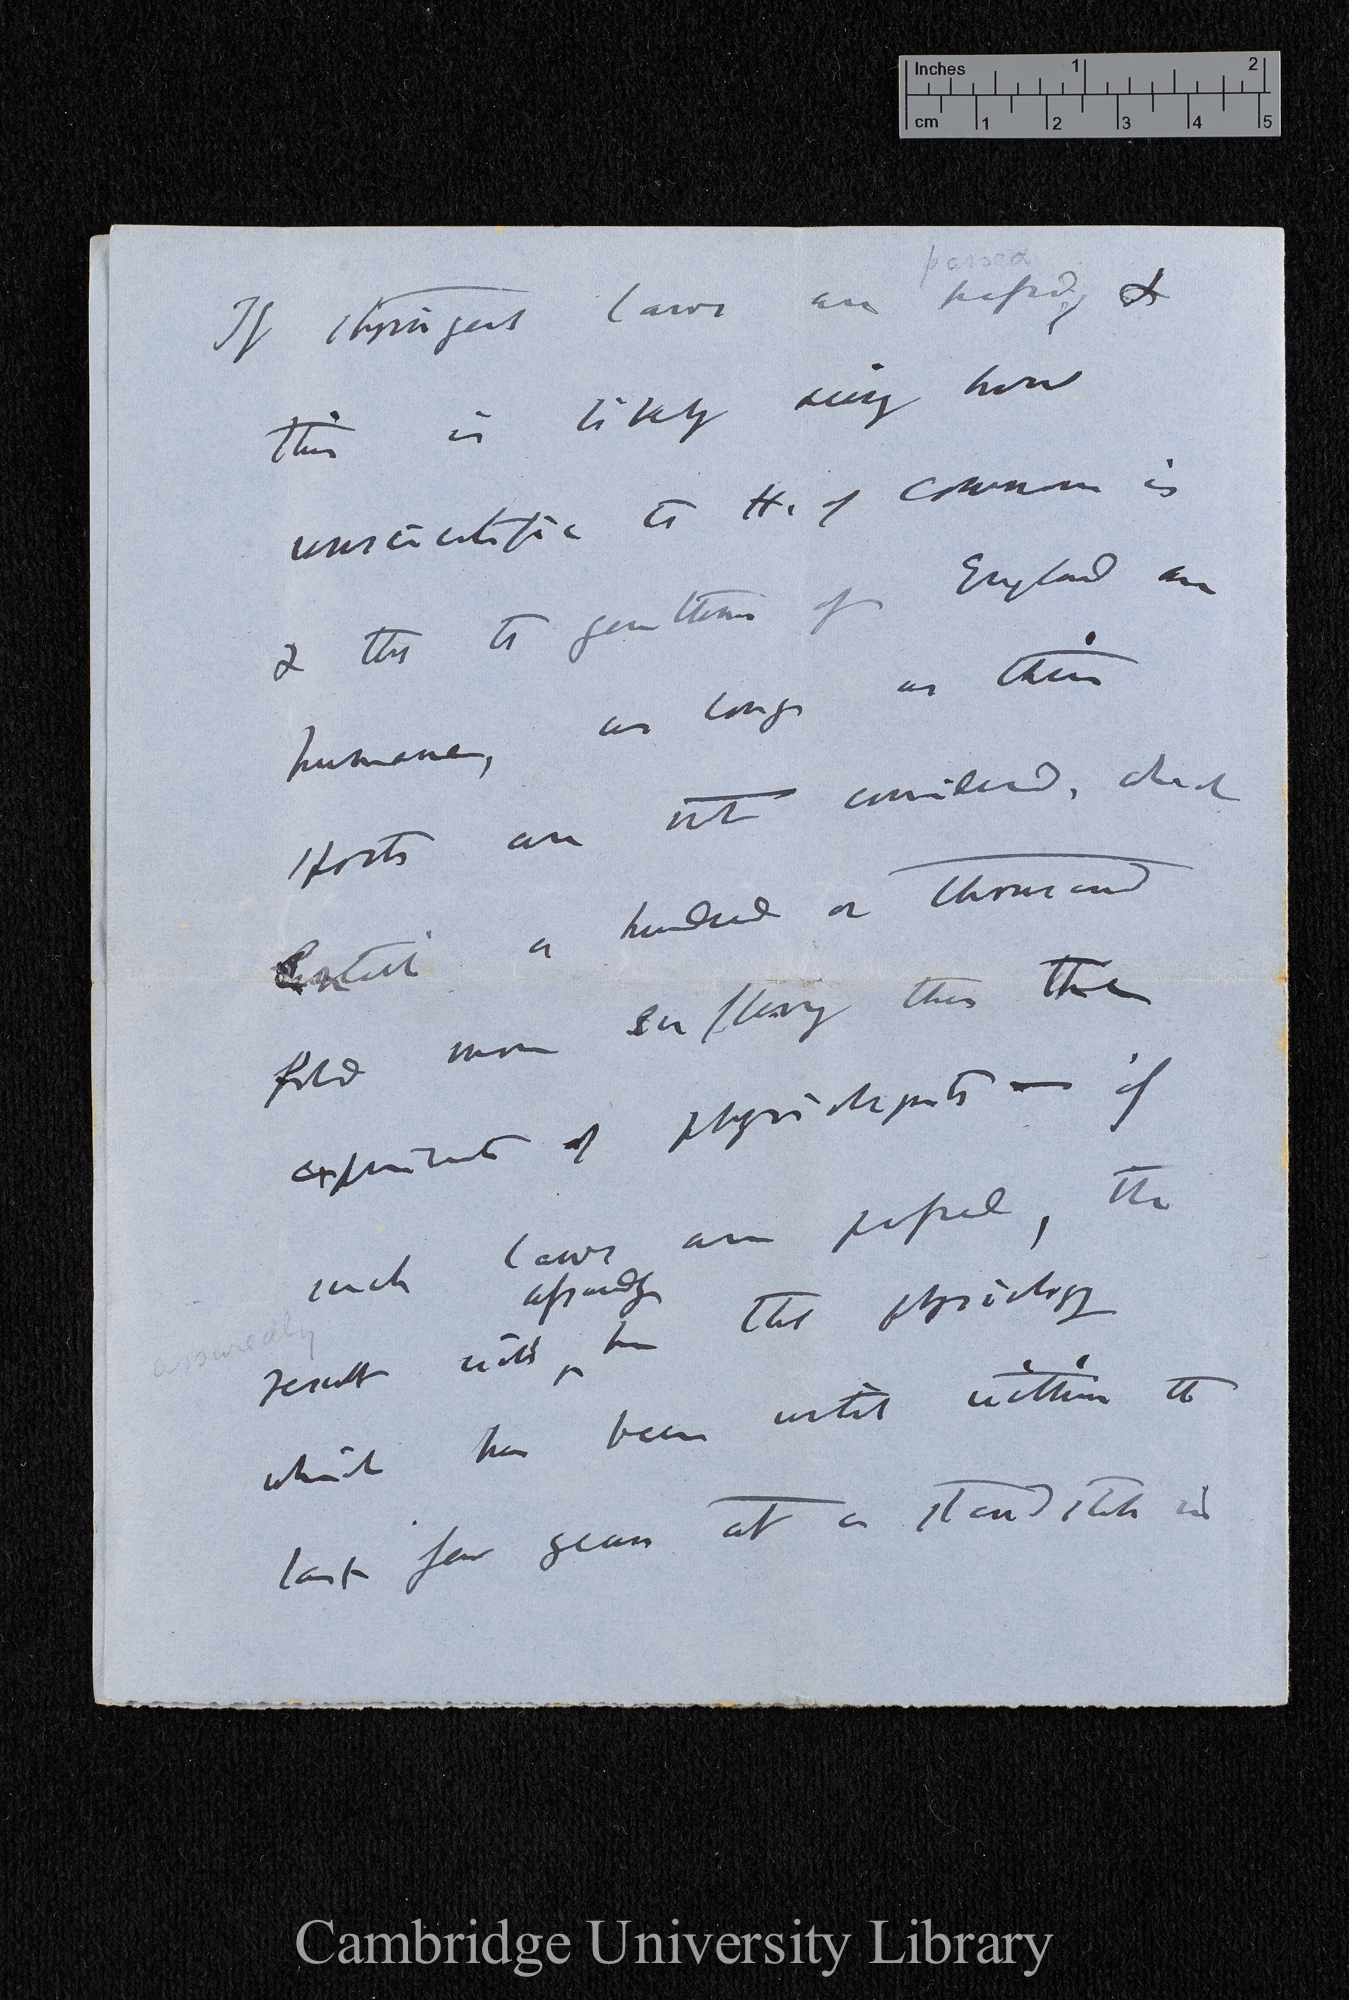 Inches 1 2
cm 1 2 3 4 5
passed
If stringent laws are passed, &
this is likely seeing how
unscientific the H. of Commons is
& that the gentlemen of England are
humane, as long as their
sports are not considered, which
entail a hundred or thousand
fold more suffering than the
experiments of physiologists — if
such laws are passed, the
assuredly
assuredly
result will be that physiology
which has been until within the
last few years at a standstill in
Cambridge University Library